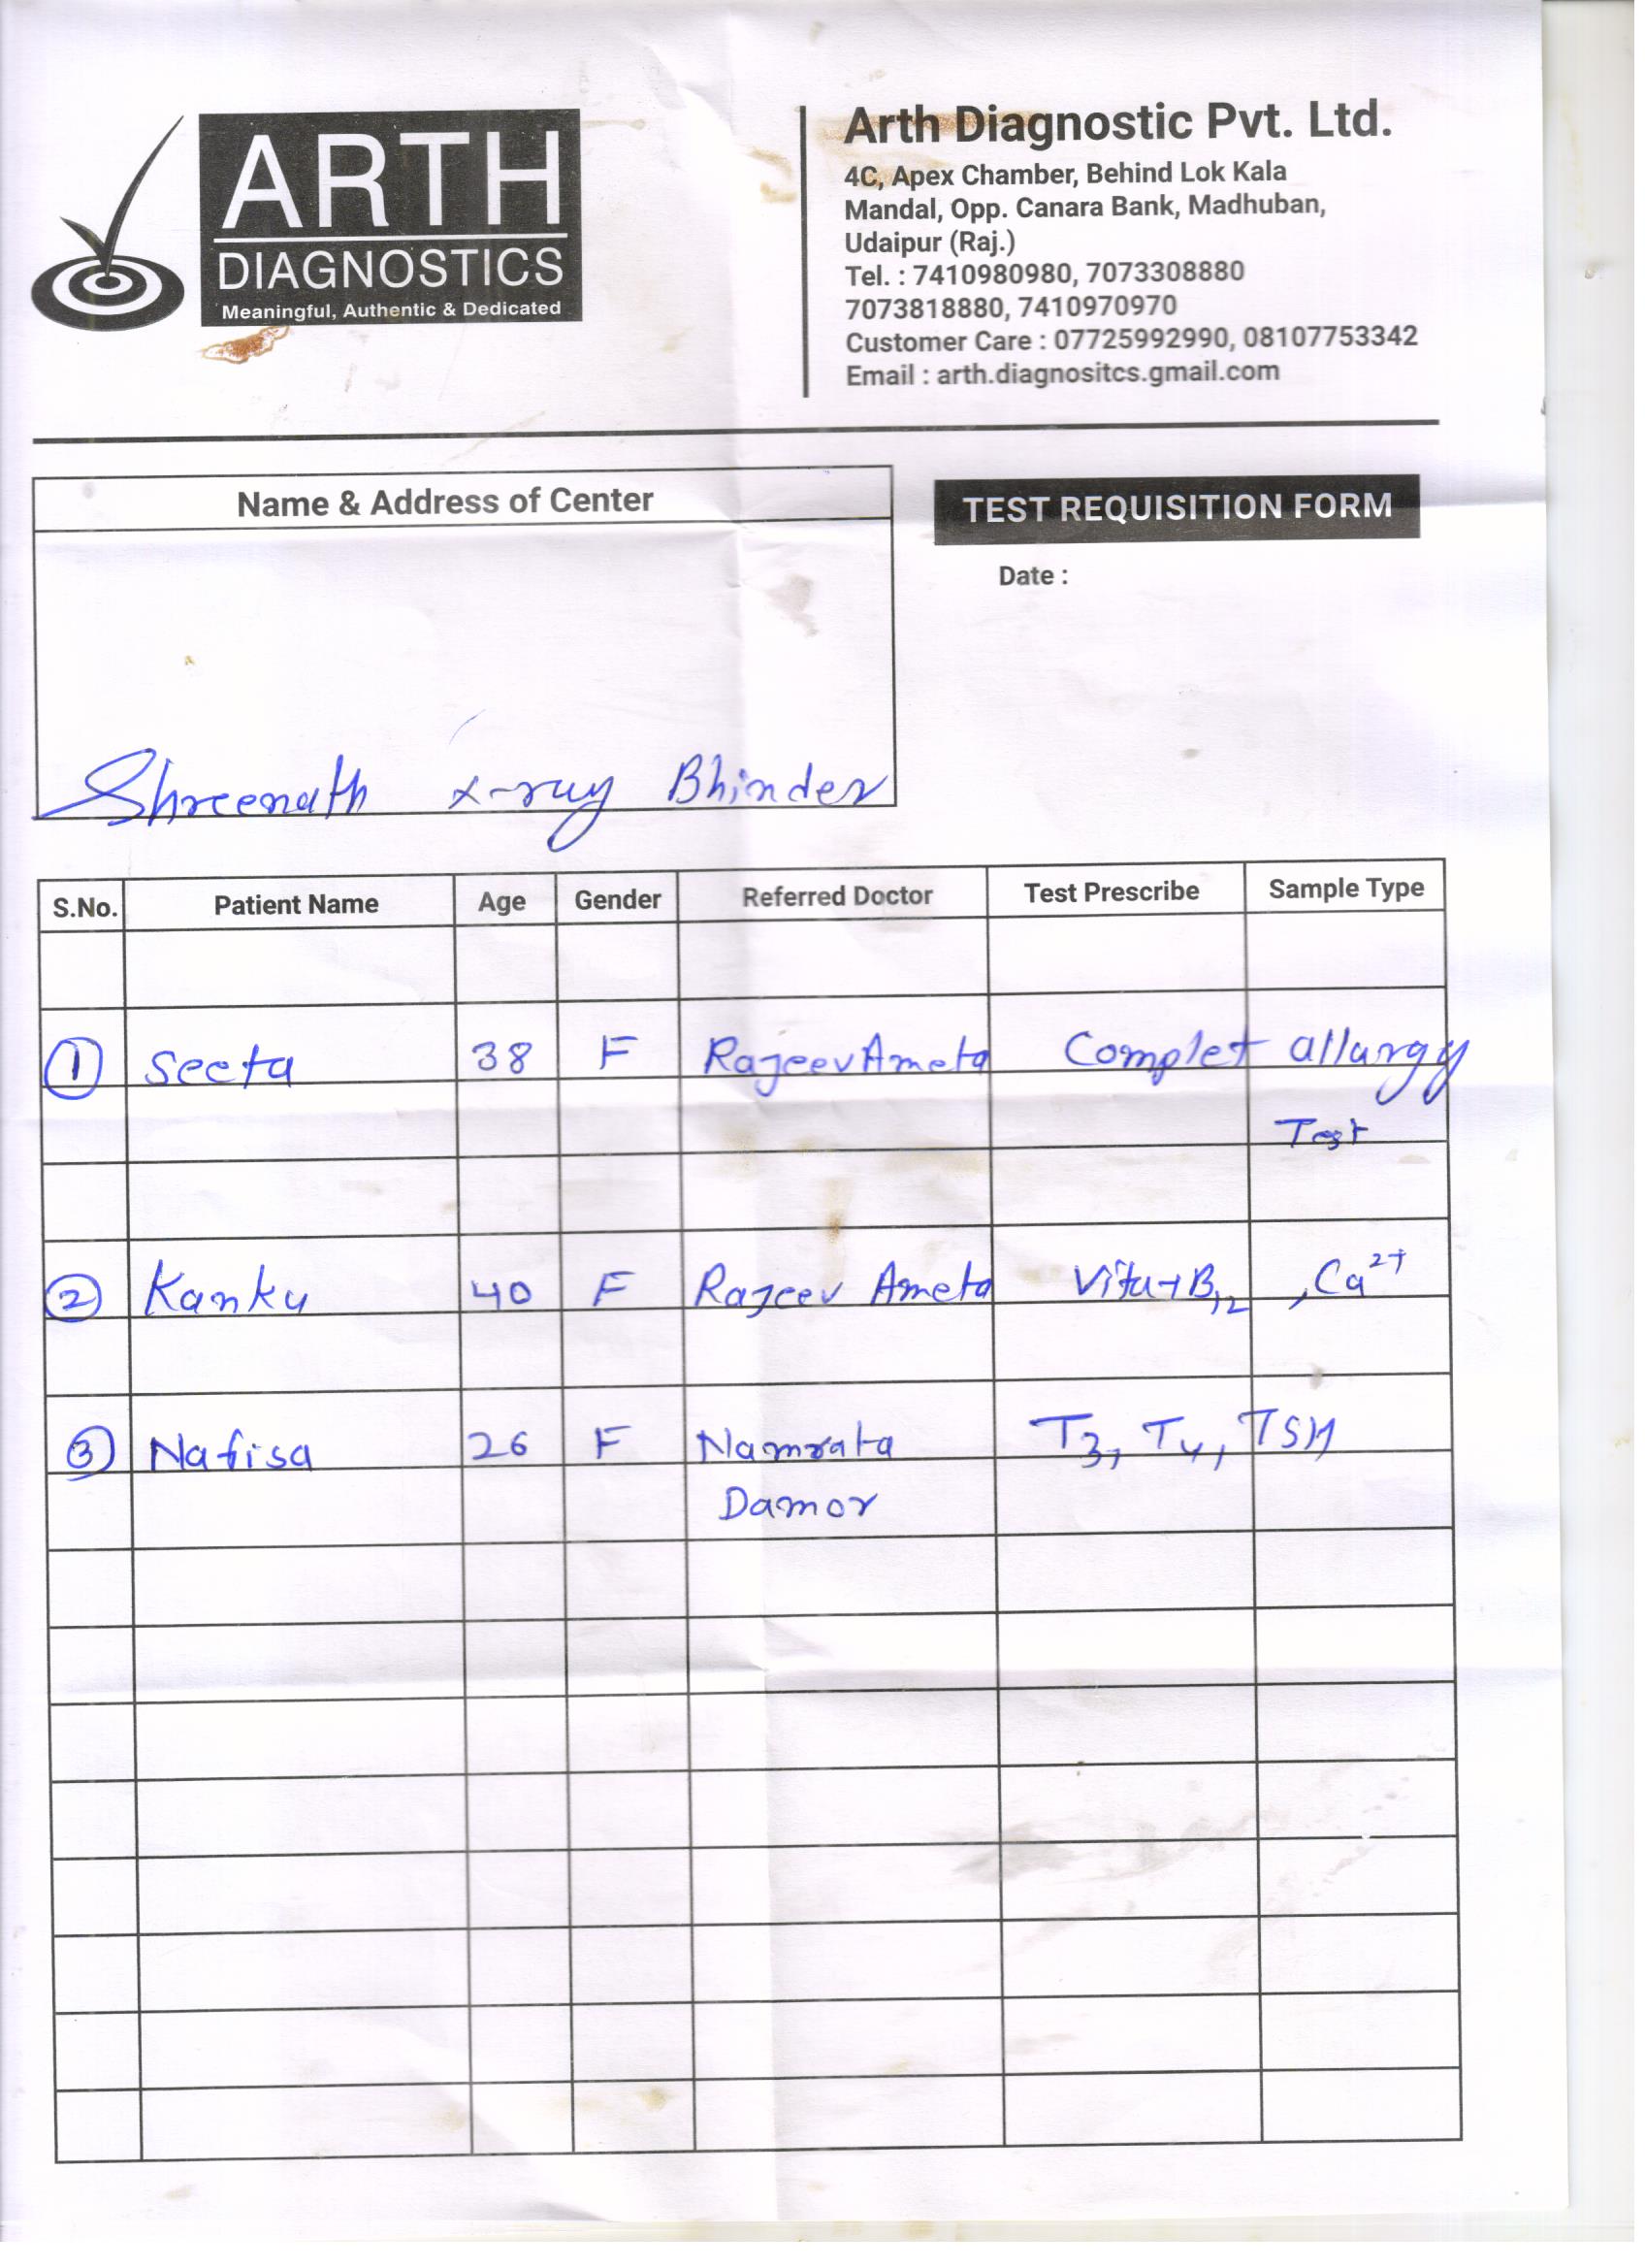 ARTH
DIAGNOSTICS
Meaningful, Authentic & Dedicated
Arth Diagnostic Pvt. Ltd.
4C, Apex Chamber, Behind Lok Kala
Mandal, Opp. Canara Bank, Madhuban,
Udaipur (Raj.)
Tel. : 7410980980, 7073308880
7073818880, 7410970970
Customer Care : 07725992990, 08107753342
Email : arth.diagnositcs.gmail.com
Name & Address of Center
TEST REQUISITION FORM
Date :
Shreenath x-ray Bhinder
S.No. Patient Name Age Gender Referred Doctor Test Prescribe Sample Type
1 Seeta 38 F Rajeev Ameta Complet allargy
Test
2 Kanku 40 F Rajeev Ameta Vita+B12 , Ca2+
3 Nafisa 26 F Namrata T3, T4, TSH
Damor